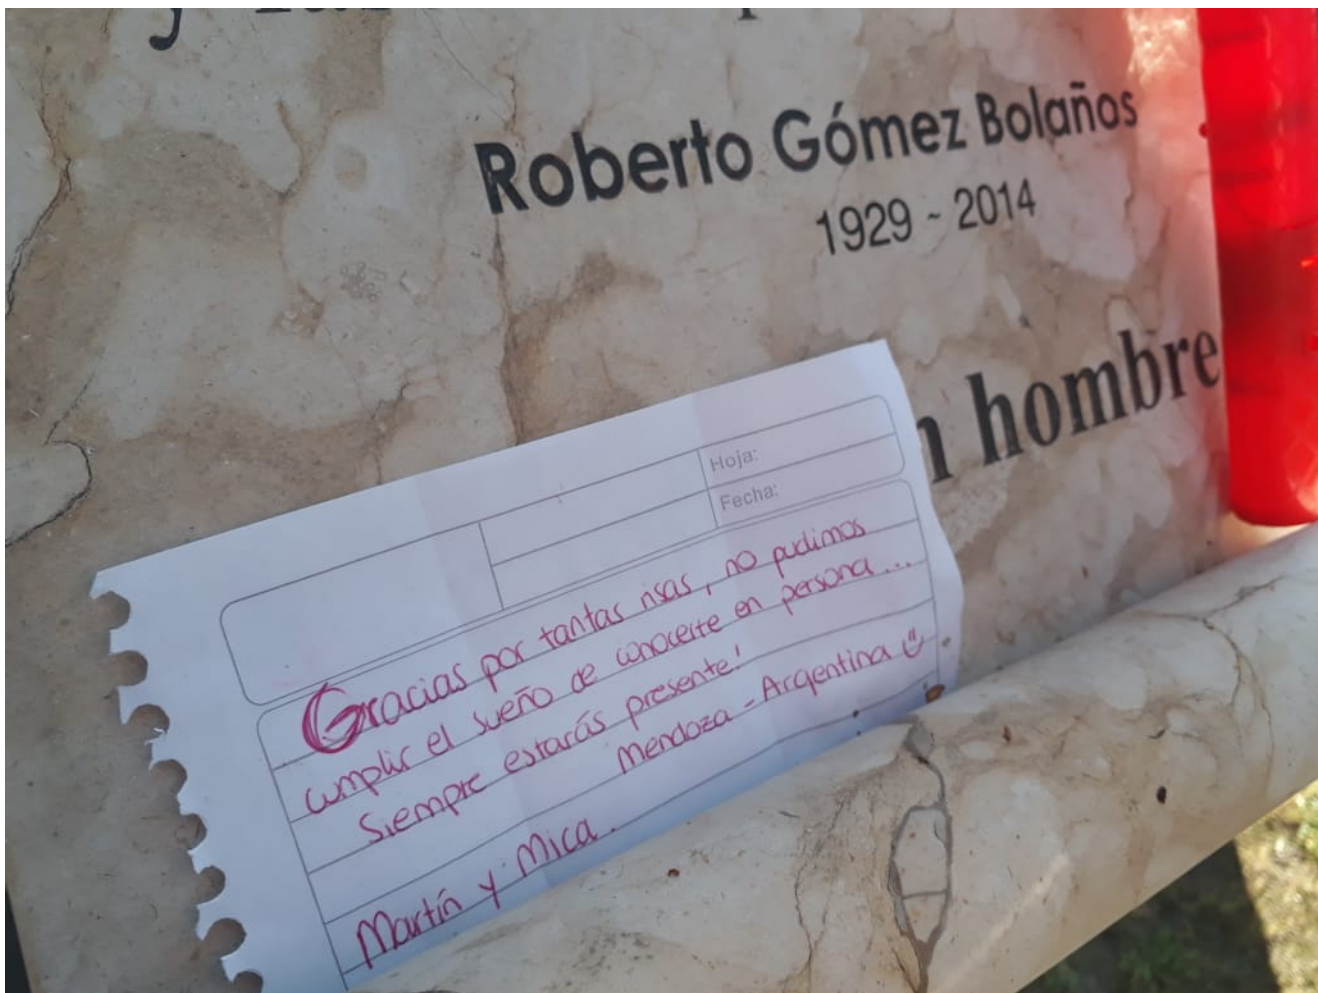 Roberto Gómez Bolaños
1929 ~ 2014
n hombre
Hoja:
Fecha:
Gracias por tantas risas, no pudimos
cumplir el sueño de conocerte en persona...
Siempre estarás presente!
Mendoza - Argentina
Martín y Mica.